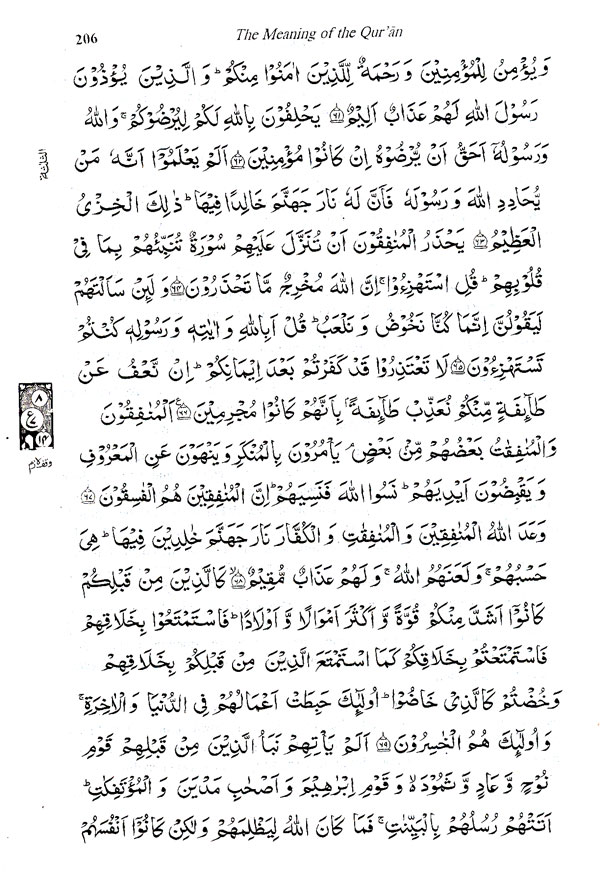 206
The Meaning of the Qur'ān
وَيُؤْمِنُ لِلْمُؤْمِنِيْنَ وَرَحْمَةٌ لِّلَّذِيْنَ اٰمَنُوْا مِنْكُمْ ؕ وَالَّذِيْنَ يُؤْذُوْنَ
رَسُوْلَ اللّٰهِ لَهُمْ عَذَابٌ اَلِيْمٌ ﴿۶۱﴾ يَحْلِفُوْنَ بِاللّٰهِ لَكُمْ لِيُرْضُوْكُمْ ۚ وَاللّٰهُ
وَرَسُوْلُهٗۤ اَحَقُّ اَنْ يُّرْضُوْهُ اِنْ كَانُوْا مُؤْمِنِيْنَ ﴿۶۲﴾ اَلَمْ يَعْلَمُوْۤا اَنَّهٗ مَنْ
يُّحَادِدِ اللّٰهَ وَرَسُوْلَهٗ فَاَنَّ لَهٗ نَارَ جَهَنَّمَ خَالِدًا فِيْهَا ؕ ذٰلِكَ الْخِزْیُ
الْعَظِيْمُ ﴿۶۳﴾ يَحْذَرُ الْمُنٰفِقُوْنَ اَنْ تُنَزَّلَ عَلَيْهِمْ سُوْرَةٌ تُنَبِّئُهُمْ بِمَا فِیْ
قُلُوْبِهِمْ ؕ قُلِ اسْتَهْزِءُوْا ۚ اِنَّ اللّٰهَ مُخْرِجٌ مَّا تَحْذَرُوْنَ ﴿۶۴﴾ وَلَئِنْ سَاَلْتَهُمْ
لَيَقُوْلُنَّ اِنَّمَا كُنَّا نَخُوْضُ وَنَلْعَبُ ؕ قُلْ اَبِاللّٰهِ وَاٰيٰتِهٖ وَرَسُوْلِهٖ كُنْتُمْ
تَسْتَهْزِءُوْنَ ﴿۶۵﴾ لَا تَعْتَذِرُوْا قَدْ كَفَرْتُمْ بَعْدَ اِيْمَانِكُمْ ؕ اِنْ نَّعْفُ عَنْ
طَآئِفَةٍ مِّنْكُمْ نُعَذِّبْ طَآئِفَةًۢ بِاَنَّهُمْ كَانُوْا مُجْرِمِيْنَ ﴿۶۶﴾ اَلْمُنٰفِقُوْنَ
وَالْمُنٰفِقٰتُ بَعْضُهُمْ مِّنْۢ بَعْضٍ ۘ يَاْمُرُوْنَ بِالْمُنْكَرِ وَيَنْهَوْنَ عَنِ الْمَعْرُوْفِ
وَيَقْبِضُوْنَ اَيْدِيَهُمْ ؕ نَسُوا اللّٰهَ فَنَسِيَهُمْ ؕ اِنَّ الْمُنٰفِقِيْنَ هُمُ الْفٰسِقُوْنَ ﴿۶۷﴾
وَعَدَ اللّٰهُ الْمُنٰفِقِيْنَ وَالْمُنٰفِقٰتِ وَالْكُفَّارَ نَارَ جَهَنَّمَ خٰلِدِيْنَ فِيْهَا ؕ هِیَ
حَسْبُهُمْ ۚ وَلَعَنَهُمُ اللّٰهُ ۚ وَلَهُمْ عَذَابٌ مُّقِيْمٌ ﴿۶۸﴾ كَالَّذِيْنَ مِنْ قَبْلِكُمْ
كَانُوْۤا اَشَدَّ مِنْكُمْ قُوَّةً وَّاَكْثَرَ اَمْوَالًا وَّاَوْلَادًا ؕ فَاسْتَمْتَعُوْا بِخَلَاقِهِمْ
فَاسْتَمْتَعْتُمْ بِخَلَاقِكُمْ كَمَا اسْتَمْتَعَ الَّذِيْنَ مِنْ قَبْلِكُمْ بِخَلَاقِهِمْ
وَخُضْتُمْ كَالَّذِیْ خَاضُوْا ؕ اُولٰٓئِكَ حَبِطَتْ اَعْمَالُهُمْ فِی الدُّنْيَا وَالْاٰخِرَةِ ۚ
وَاُولٰٓئِكَ هُمُ الْخٰسِرُوْنَ ﴿۶۹﴾ اَلَمْ يَاْتِهِمْ نَبَاُ الَّذِيْنَ مِنْ قَبْلِهِمْ قَوْمِ
نُوْحٍ وَّعَادٍ وَّثَمُوْدَ ۙ وَقَوْمِ اِبْرٰهِيْمَ وَاَصْحٰبِ مَدْيَنَ وَالْمُؤْتَفِكٰتِ ؕ
اَتَتْهُمْ رُسُلُهُمْ بِالْبَيِّنٰتِ ۚ فَمَا كَانَ اللّٰهُ لِيَظْلِمَهُمْ وَلٰكِنْ كَانُوْۤا اَنْفُسَهُمْ
الثلثة
۸
ع
۱۴
وقف لازم